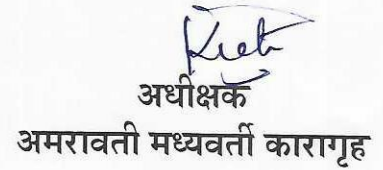 अधीक्षक
अमरावती मध्यवर्ती कारागृह